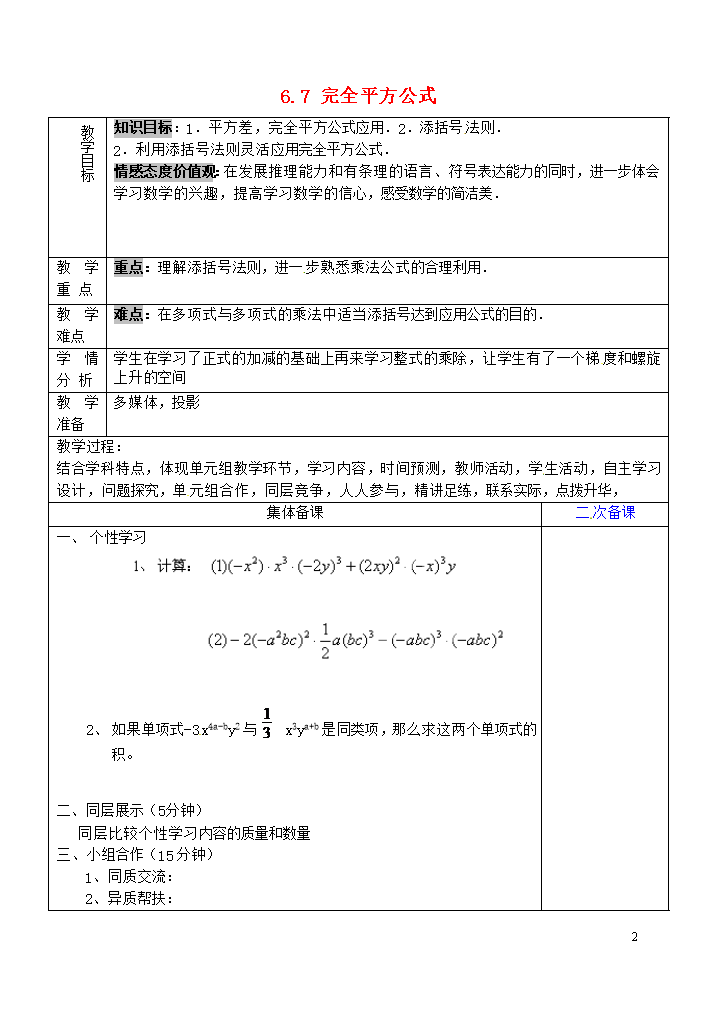 6.7 完全平方公式
教学目标
知识目标：1．平方差，完全平方公式应用．2．添括号法则．
2．利用添括号法则灵活应用完全平方公式．
情感态度价值观：在发展推理能力和有条理的语言、符号表达能力的同时，进一步体会
学习数学的兴趣，提高学习数学的信心，感受数学的简洁美．
教 学
重 点
重点：理解添括号法则，进一步熟悉乘法公式的合理利用．
教 学
难点
难点：在多项式与多项式的乘法中适当添括号达到应用公式的目的．
学 情
分 析
学生在学习了正式的加减的基础上再来学习整式的乘除，让学生有了一个梯度和螺旋
上升的空间
教 学
准备
多媒体，投影
教学过程：
结合学科特点，体现单元组教学环节，学习内容，时间预测，教师活动，学生活动，自主学习
设计，问题探究，单元组合作，同层竞争，人人参与，精讲足练，联系实际，点拨升华，
集体备课
二次备课
一、 个性学习
1、 计算： (1)(−x²)·x³·(−2y)³+(2xy)²·(−x)³y
(2)−2(−a²bc)²·1/2a(bc)³−(−abc)³·(−abc)²
2、 如果单项式-3x⁴ᵃ⁻ᵇy²与1/3 x³yᵃ⁺ᵇ是同类项，那么求这两个单项式的
积。
二、同层展示（5分钟）
同层比较个性学习内容的质量和数量
三、小组合作（15分钟）
1、同质交流：
2、异质帮扶：
2